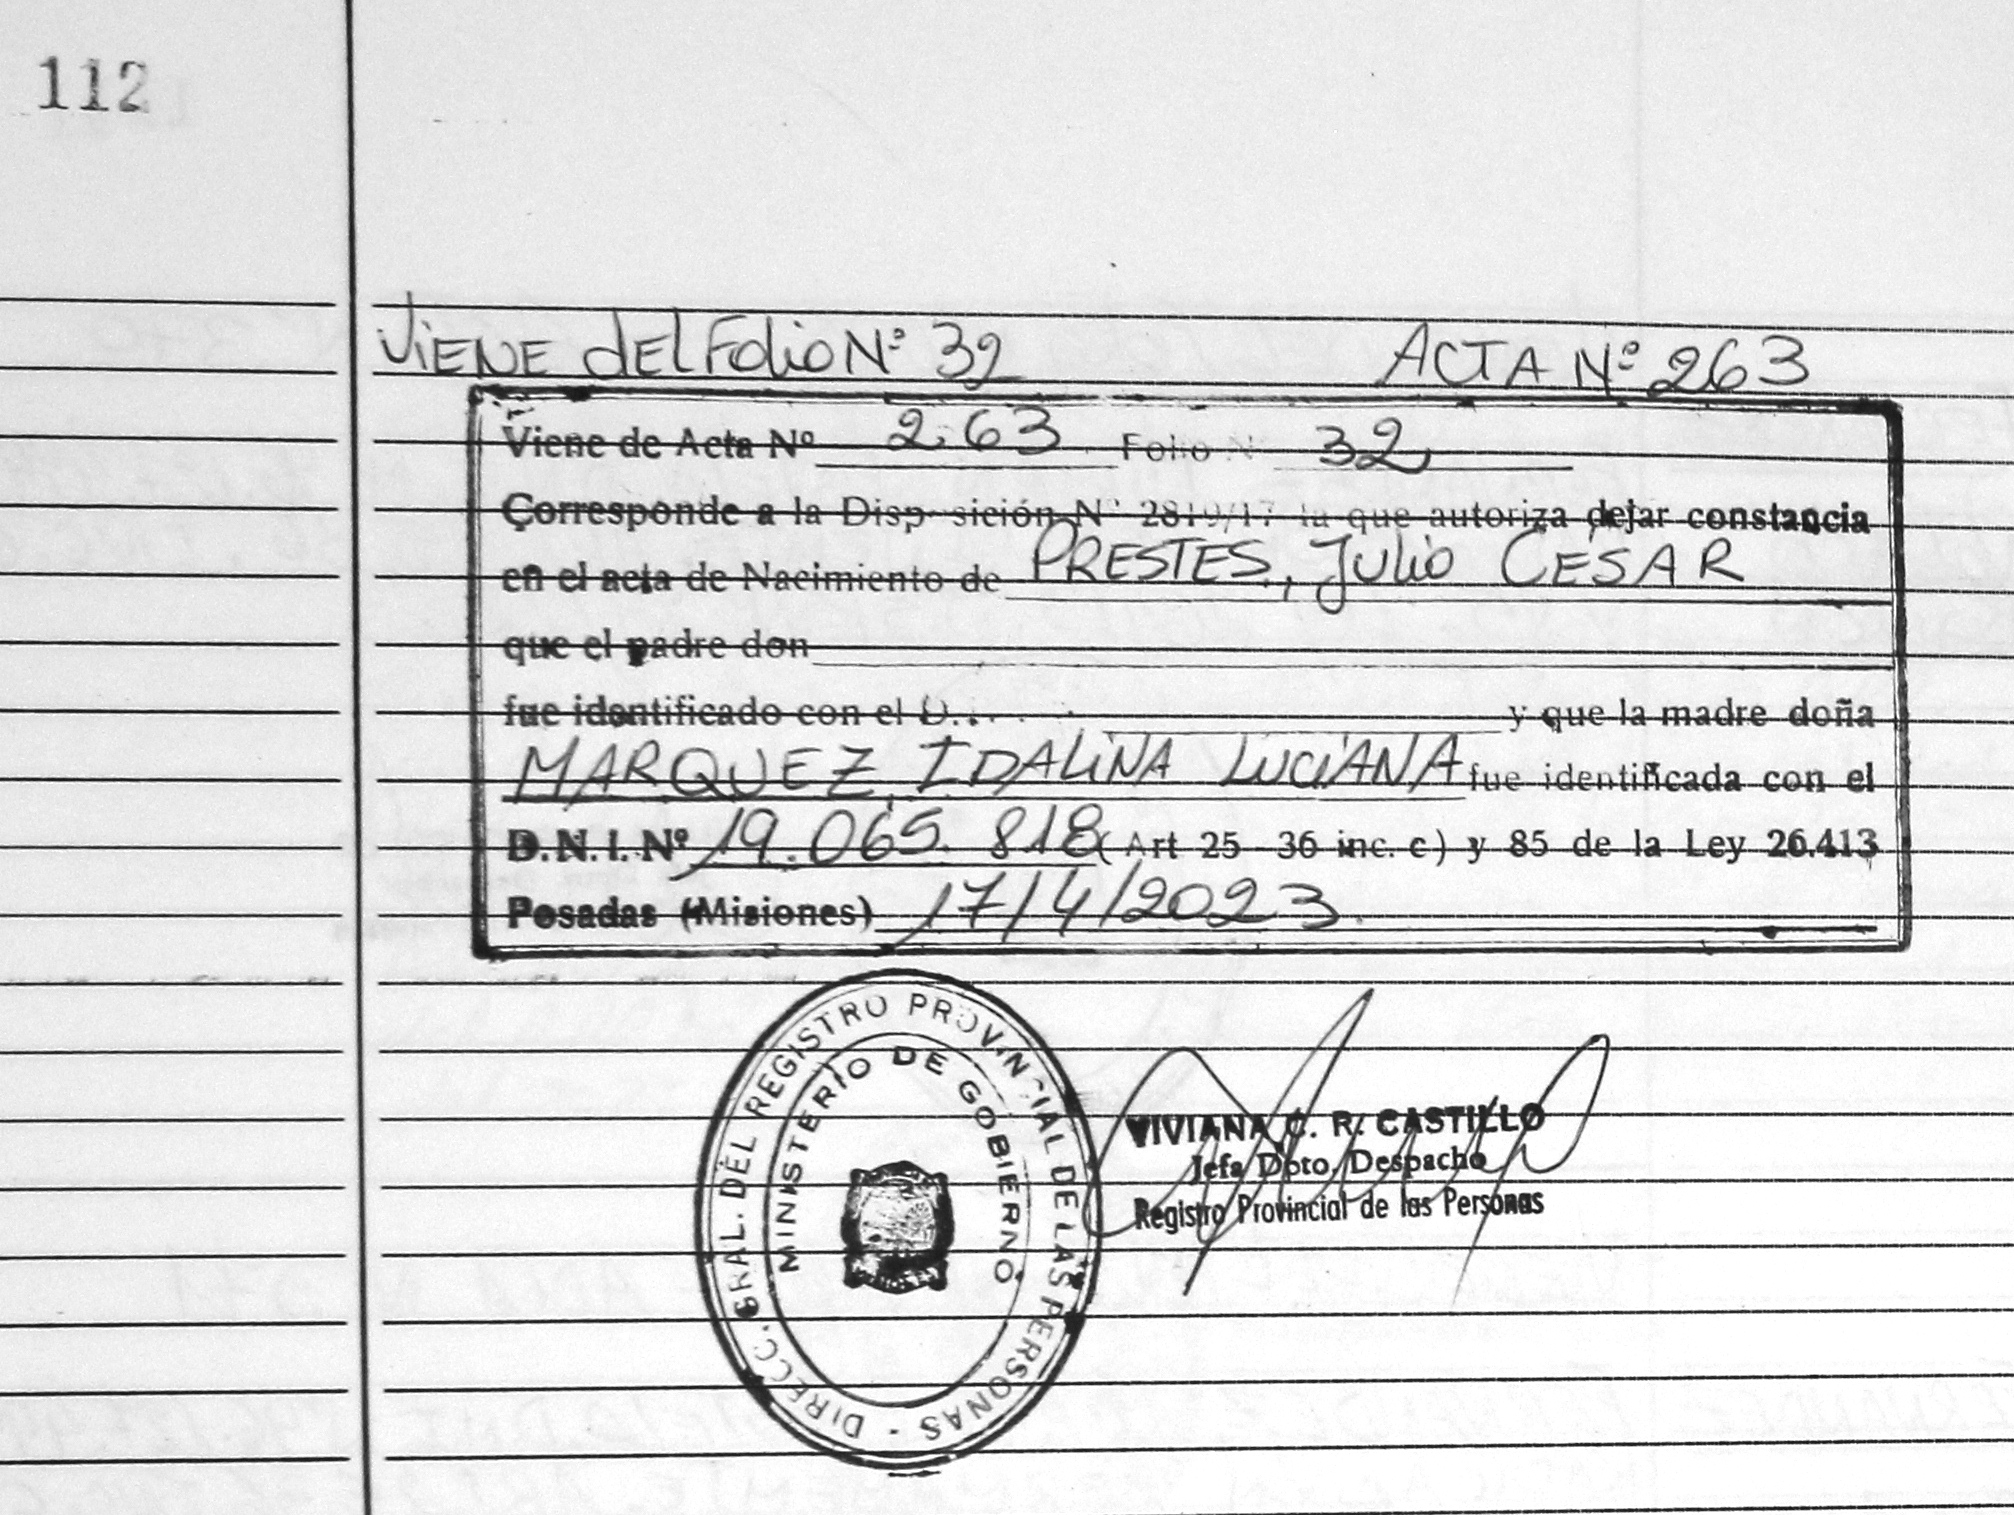 112
ViENE dEL Folio Nº 32 ACTA Nº 263
Viene de Acta Nº 263 Folio N 32
Corresponde a la Disp sición Nº 2819/17 la que autoriza dejar constancia
en el acta de Nacimiento de PRESTES, Julio CESAR
que el padre don
fue identificado con el D.. y que la madre doña
MARQUEZ, IDALiNA LUCiANA fue identificada con el
D.N.I. Nº 19.065.818 (Art 25 - 36 inc. c) y 85 de la Ley 26.413
Posadas (Misiones) 17/4/2023.
DIRECC. GRAL. DEL REGISTRO PROVINCIAL DE LAS PERSONAS -
MINISTERIO DE GOBIERNO
VIVIANA C. R. CASTILLO
Jefa Dpto. Despacho
Registro Provincial de las Personas